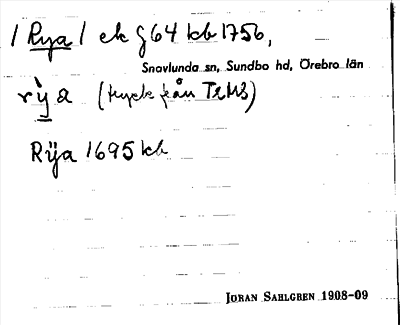 / Rya / ek g 64 kb 1756,
Snavlunda sn, Sundbo hd, Örebro län
rỳa (tryck från TRMS)
Rÿa 1695 kb
JÖRAN SAHLGREN 1908-09